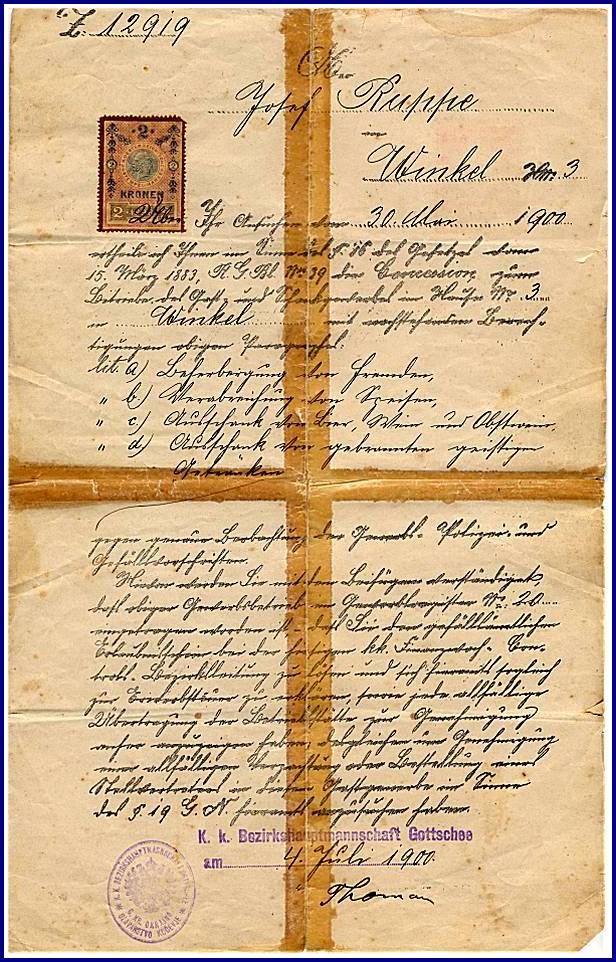 Z. 12919
Herr
Josef Ruppe
von
Winkel Nr. 3
2
KRONEN
2
Über Ihr Ansuchen vom 30. Mai 1900
ertheile ich Ihnen im Sinne des § 16 des Gesetzes vom
15. März 1883, R. G. Bl. Nr. 39 die Concession zum
Betriebe des Gast- und Schankgewerbes im Hause Nr. 3
in Winkel mit nachstehenden Berech-
tigungen obigen Paragraphes:
lit. a) Beherbergung von Fremden,
" b) Verabreichung von Speisen,
" c) Ausschank von Bier, Wein und Obstwein,
" d) Ausschank von gebrannten geistigen
Getränken
gegen genaue Beobachtung der Gewerbs- Polizei- und
Gefällsvorschriften.
Hievon werden Sie mit dem Beifügen verständiget,
daß obiger Gewerbsbetrieb im Gewerberegister Nr. 20
eingetragen worden ist, daß Sie den gefällsämtlichen
Erlaubnisschein bei der hiesigen kk. Finanzwach- Con-
trols- Bezirksleitung zu lösen und sich hieramts sogleich
zur Erwerbsteuer zu erklären, sowie jede allfällige
Übertragung der Betriebsstätte zur Genehmigung
anher anzuzeigen haben, desgleichen um Genehmigung
einer allfälligen Verpachtung oder Bestellung eines
Stellvertreters in diesem Gastgewerbe im Sinne
des § 19 G. N. hieramts anzusuchen haben.
K. k. Bezirkshauptmannschaft Gottschee
am 4. Juli 1900.
Thoman
K. K. BEZIRKSHAUPTMANNSCHAFT
C. KR. OKRAJNO GLAVARSTVO KOČEVJE